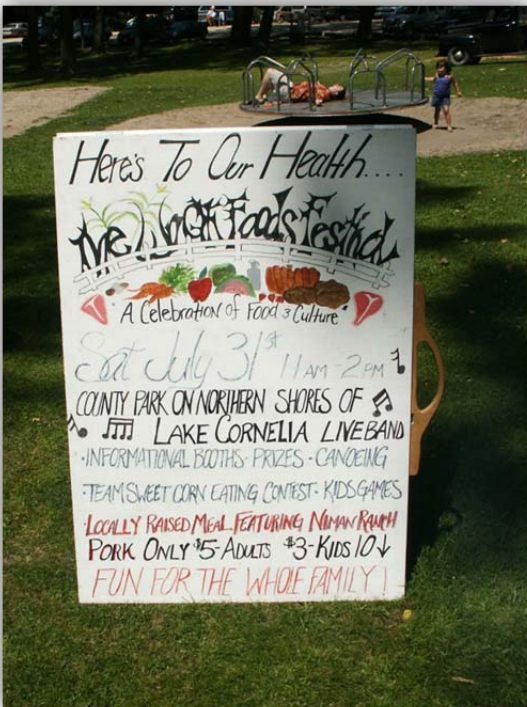 Here's To Our Health....
The Wright Foods Festival
"A Celebration of Food & Culture"
Sat July 31st 11AM-2PM
COUNTY PARK ON NORTHERN SHORES OF
LAKE CORNELIA LIVE BAND
·INFORMATIONAL BOOTHS·PRIZES·CANOEING
·TEAM SWEET CORN EATING CONTEST·KIDS GAMES
·LOCALLY RAISED MEAL FEATURING NIMAN RANCH
PORK ONLY $5-ADULTS $3-KIDS 10↓
FUN FOR THE WHOLE FAMILY!